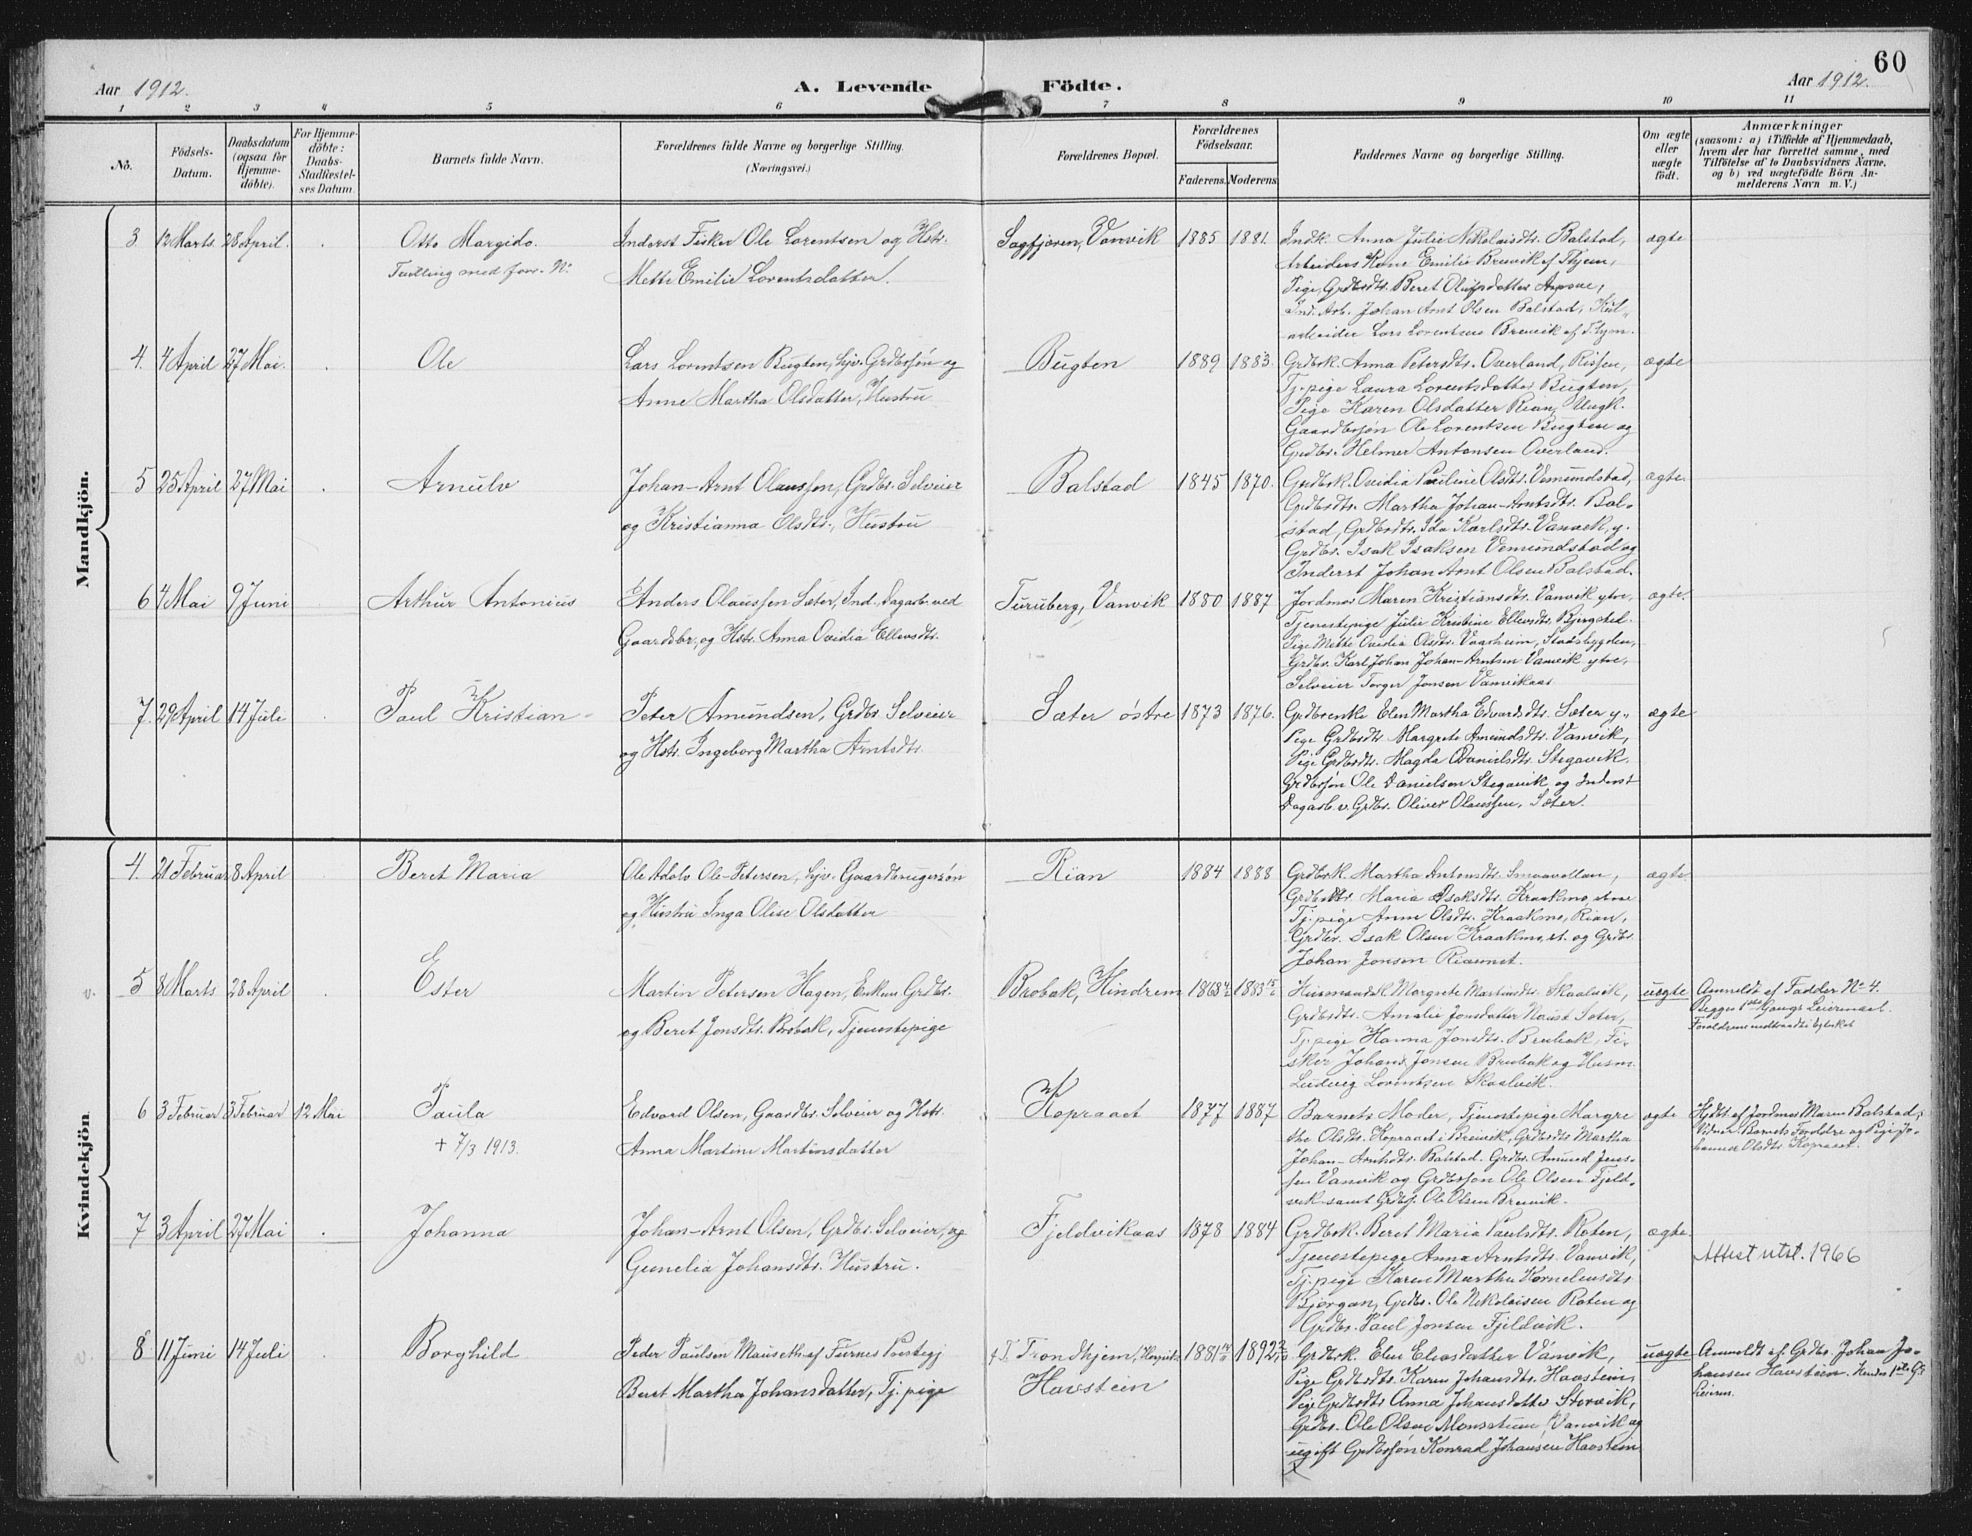 60
Aar 1912. A. Levende Födte. Aar 1912.
1 2 3 4 5 6 7 8 9 10 11
No.
Födsels-
Datum.
Daabsdatum
(ogsaa for
Hjemme-
döbte).
For Hjemme-
döbte:
Daabs-
Stadfæstel-
ses Datum.
Barnets fulde Navn.
Forældrenes fulde Navne og borgerlige Stilling.
(Næringsvei.)
Forældrenes Bopæl.
Forældrenes
Födselsaar.
Faderens. Moderens.
Faddernes Navne og borgerlige Stilling.
Om ægte
eller
uægte
födt.
Anmærkninger
(saasom: a) i Tilfælde af Hjemmedaab,
hvem der har forrettet samme, med
Tilföielse af to Daabsvidners Navne,
og b) ved uægtefödte Börn An-
melderens Navn m. V.)
Mandkjön.
3 12 Marts 28 April.
Otto Margido.
Tvilling med forr. No.
Inderst Fisker Ole Lorentsen og Hstr.
Mette Emilie Lorentsdatter.
Sagfjæren, Vanvik 1885 1881.
Indk. Anna Julie Nikolaisdtr. Balstad,
Arbeiders Kone Emilie Brevik af Thjem,
Pige, Grdbrdtr. Beret Olufsdatter
Ind. Arb. Johan Arnt Olsen Balstad,
arbeider Lars Lorentsen Brevik af Thjem.
ægte
4. 4 April 27 Mai.
Ole
Lars Lorentsen Bugten, hjv. Grdbrsøn og
Anne Martha Olsdatter, Hustru
Bugten 1889 1883.
Grdbrk. Anna Petersdtr. Overland, Rissen,
Tj.pige Laura Lorentsdatter Bugten,
Pige Karen Olsdatter Rian, Ungk.
Gaardbrsøn Ole Lorentsen Bugten og
Grdbr. Helmer Antonsen Overland.
ægte
5 25 April 27 Mai
Arnulv
Johan-Arnt Olaussen, Grdbr. Selveier
og Kristianna Olsdtr., Hustru
Balstad 1845 1870.
Grdbrk. Ovidia Pauline Olsdtr. Vemundstad,
Grdbrdtr. Martha Johan-Arntsdtr. Bal-
stad, Grdbrdtr. Ida Karlsdtr. Vanvik, y.
Grdbr. Isak Isaksen Vemundstad og
Inderst Johan Arnt Olsen Balstad.
ægte.
6 4 Mai 9 Juni
Arthur Antonius
Anders Olaussen Sæter, Ind., Dagarb. ved
Gaardbr., og Hstr. Anna Ovidia Ellevsdtr.
Turuberg, Vanvik 1880 1887
Jordmor Maren Kristiansdtr. Vanvik ytre,
Tjenestepige Julie Kristine Ellevsdtr. Bjergsted.
Pige Mette Ovidia Olsdtr. Vaarheim, Stadsbygden,
Grdbr. Karl Johan Johan-Arntsen Vanvik ytre,
Selveier Torger Jonsen Vanvikaas
ægte.
7. 29 April 14 Juli
Paul Kristian
Peter Amundsen, Grdbr. Selveier
og Hstr. Ingeborg Martha Arntsdtr.
Sæter østre 1873 1876.
Grdbrenke Elen Martha Edvardsdtr. Sæter y.,
Pige Grdbrdtr. Margrete Amundsdtr. Vanvik,
Pige Grdbrdtr. Magda Danielsdtr. Stegavik.
Grdbrsøn Ole Danielsen Stegavik og Inderst
Dagarb. v. Grdbr. Oliver Olaussen, Sæter.
ægte
Kvindekjön
4. 21 Februar 8 April
Beret Maria
Ole Adolv Ole-Petersen, hjv. Gaardbrugersøn
og Hustru Inga Olise Olsdatter
Rian 1884 1888
Grdbrk. Martha Antonsdtr. Smaavollan,
Grdbrdtr. Maria Isaksdtr. Kraakmo,
Tj.pige Anne Olsdtr. Kraakmo, Rian,
Grdbr. Isak Olsen Kraakmo, og Grdbr.
Johan Jonsen
ægte.
v. 5 8 Marts 28 April
Ester
Martin Petersen Hagen, Enkem. Grdbr.
og Beret Jonsdtr. Brobak, Tjenestepige
Brobak, Hindrem 1868 1883
Husmandsk. Margrete Martinsdtr. Skaalvik,
Grdbrdtr. Amalie Jonsdatter Sæter,
Tj.pige Hanna Jonsdtr. Brobak, Fi-
sker Johans Jonsen Brobak og Husm.
Ludvig Lorentsen Skaalvik.
uægte
Anmeldt af Fadder No 4.
Begges 1ste Gangs Leiermaal.
6 3 Februar 3 Februar 12 Mai
Paula
+ 7/3 1913.
Edvard Olsen, Gaardbr. Selveier og Hstr.
Anna Martine Martinsdatter
Kopraaet 1877 1887
Barnets Moder, Tjenestepige Margre
the Olsdtr. Kopraaet i Breivik, Grdbrdtr. Martha
Johan-Arntsdtr. Balstad. Grdbr. Amund Jens-
sen Vanvik og Grdbrsøn Ole Olsen Fjeld-
vik samt Grdbrs. Ole Olsen Brevik.
ægte
Hjdbt. af Jordmor Maren Balstad;
Vidner Barnets Forældre og Pige Jo-
hanna Olsdtr. Kopraaet.
7 3 April 27 Mai
Johanna
Johan-Arnt Olsen, Grdbr. Selveier, og
Gunelia Johansdtr. Hustru.
Fjeldvikaas 1878 1884
Grdbrk. Beret Maria Paulsdtr. Roten,
Tjenestepige Anna Arntsdtr. Vanvik,
Tj.pige Karen Martha Korneliusdtr.
Bjørgan, Grdbr. Ole Nikolaisen Roten og
Grdbr. Paul Jonsen Fjeldvik.
ægte.
Attest utst. 1966
v. 8 11 Juni 14 Juli
Borghild
Peder Paulsen Mauseth af Furnes Præstegj.
Beret Martha Johansdatter, Tj.pige
f. T. Trondhjem,
Havstein
1881 1892
Grdbrk. Elen Eliasdatter Vanvik,
Pige Grdbrdtr. Karen Johansdtr. Havstein,
Pige Grdbrdtr. Anna Johansdatter Storvik,
Grdbr. Ole Olsen Vanvik og
ugift Grdbrsøn Konrad Johansen Havstein
uægte
Anmeldt af Grdbr. Johan Jo-
hansen Havstein. Hendes 1ste G.
Leierm.